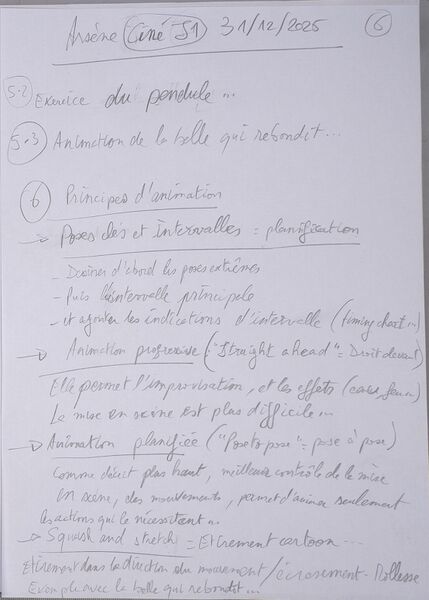 Arsène Ciné S1 31/12/2025 6
5.2 Exercice du pendule...
5.3 Animation de la balle qui rebondit...
6 Principes d'animation
→ Poses clés et intervalles = planification
- Dessiner d'abord les poses extrêmes
- Puis l'intervalle principale
- et ajouter les indications d'intervalle (timing chart...)
→ Animation progressive ("Straight ahead" = Droit devant)
Elle permet l'improvisation, et les effets (eau, feu..)
La mise en scène est plus difficile...
→ Animation planifiée ("Pose to pose" = pose à pose)
Comme décrit plus haut, meilleur contrôle de la mise
en scène, des mouvements, permet d'animer seulement
les actions qui le nécessitent..
→ Squash and stretch = Etirement cartoon...
Etirement dans la direction du mouvement / écrasement - Mollesse
Exemple avec la balle qui rebondit...